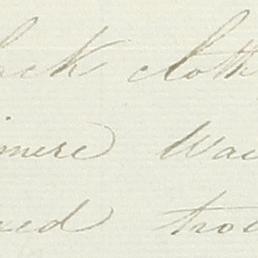 ack cloth
imere Wai
ned trou